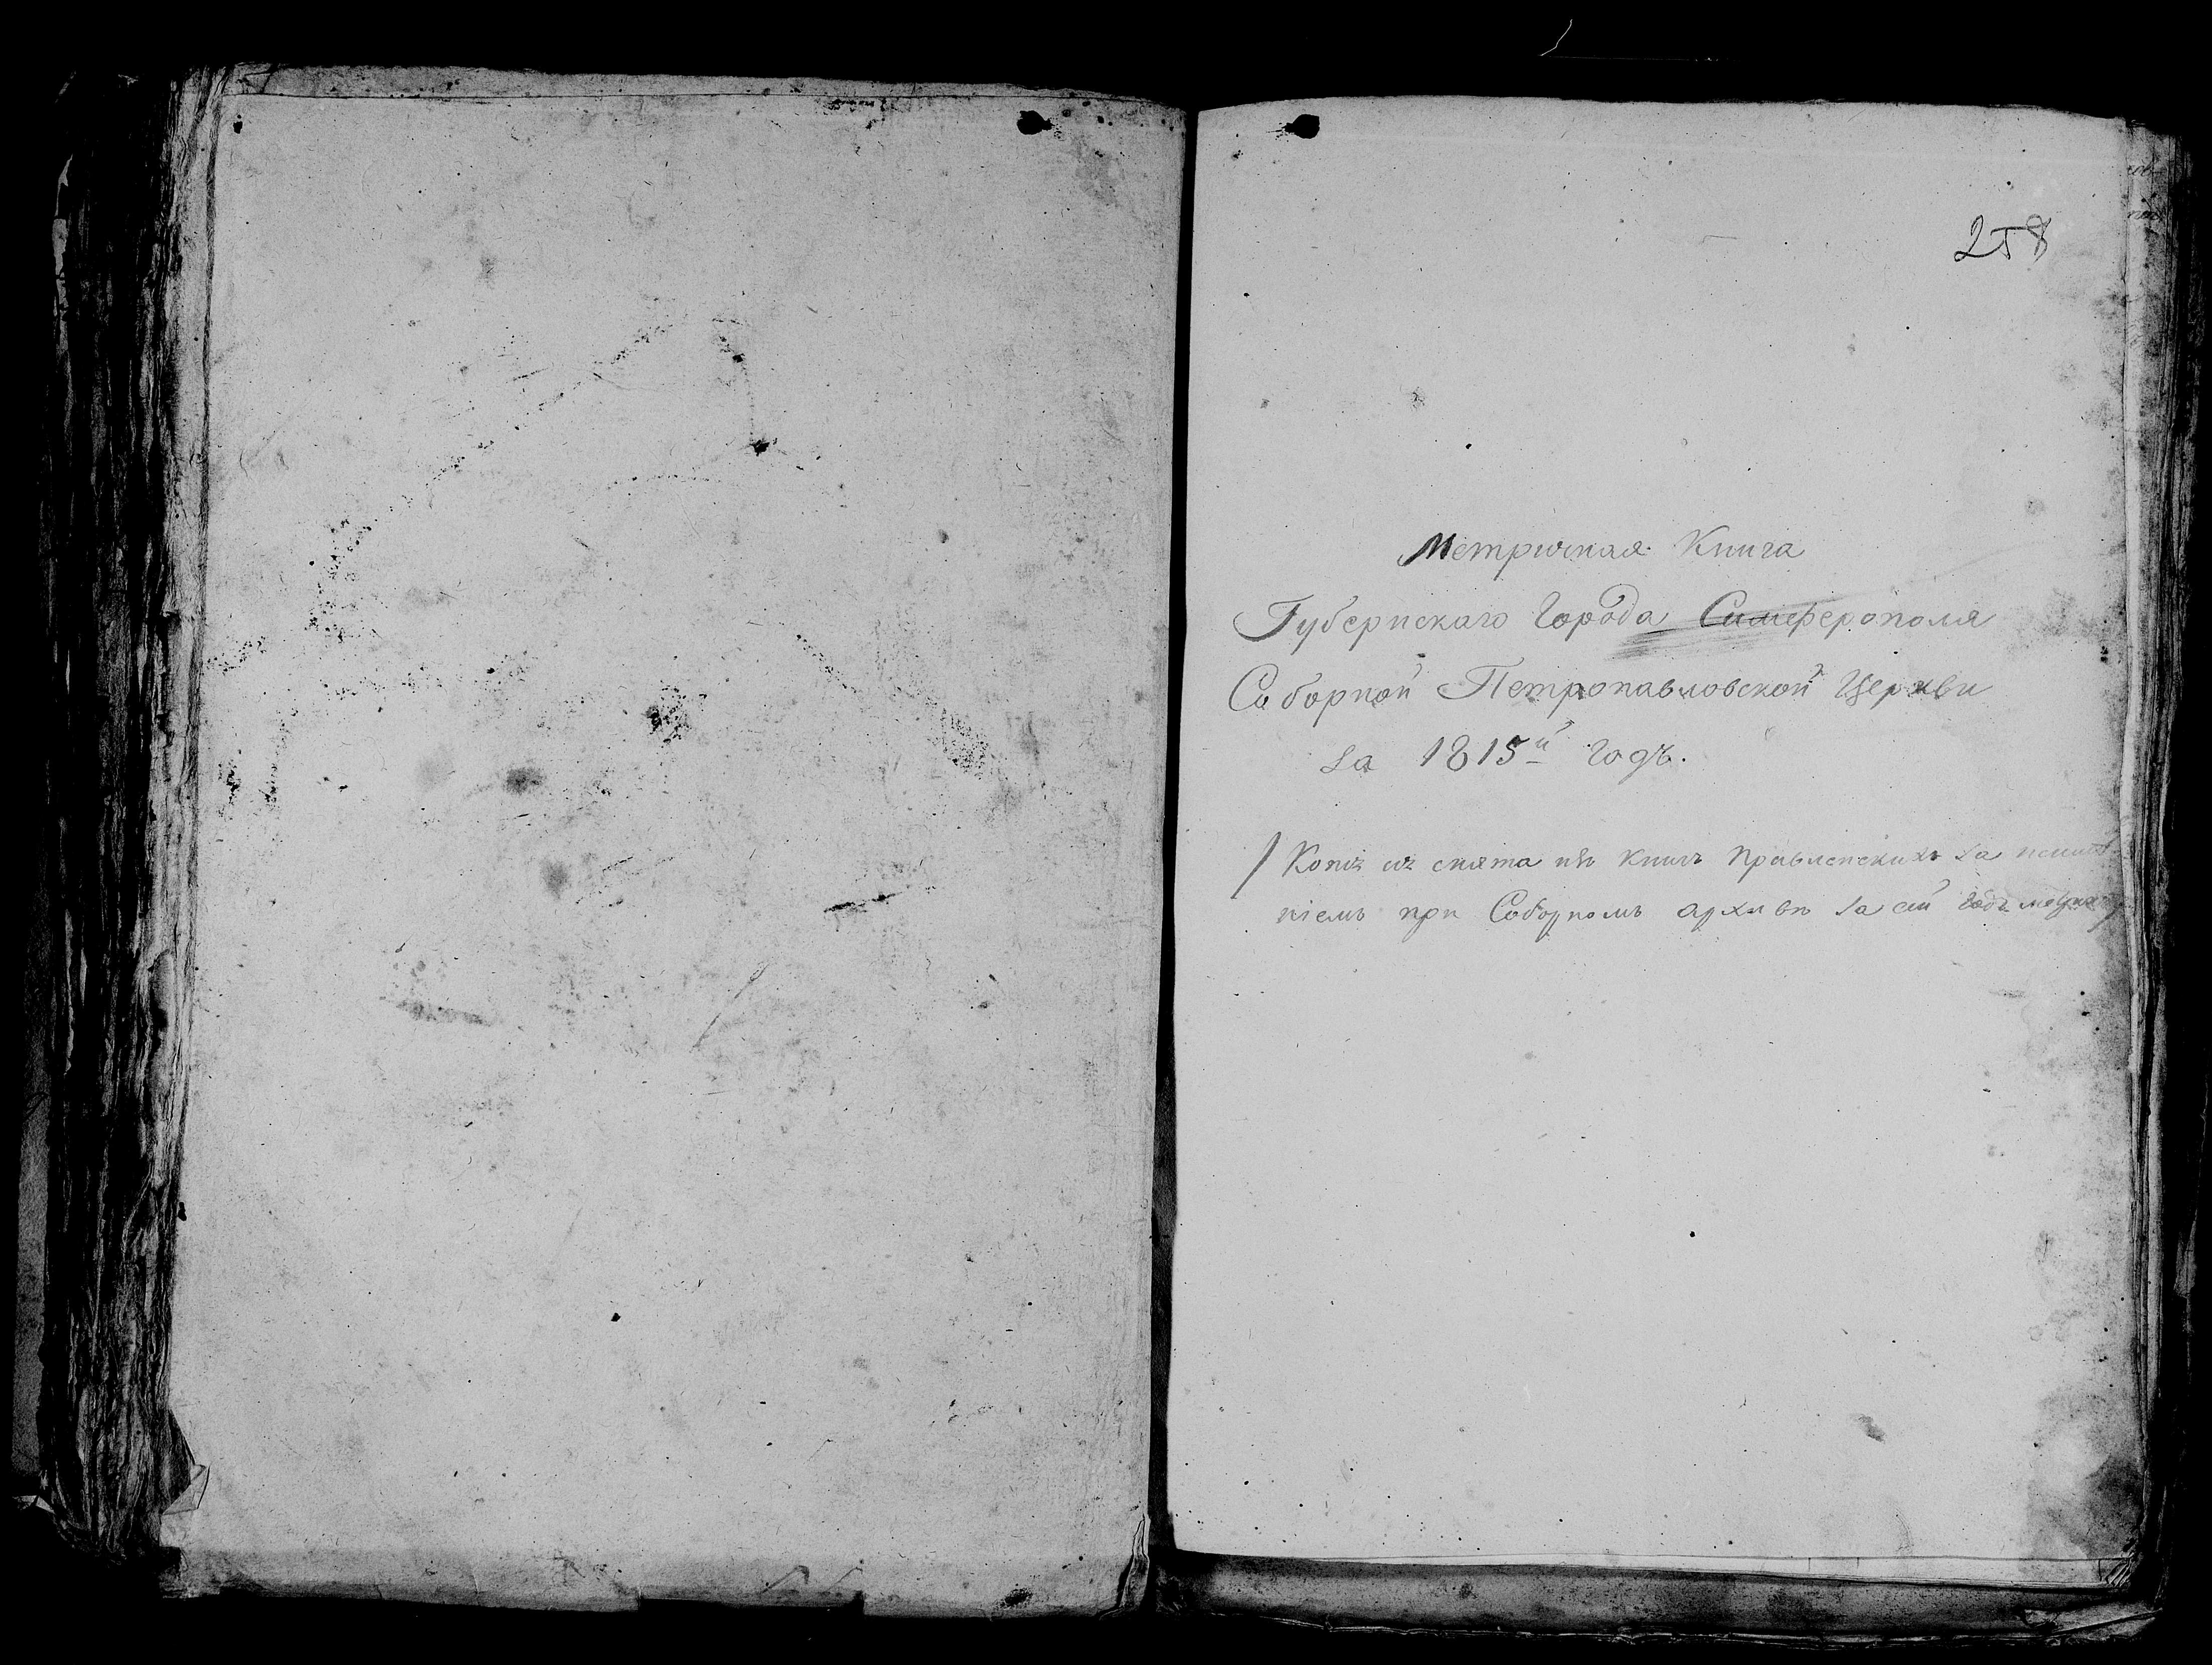 258
Метричная Книга
Губернскаго Города Симферополя
Соборной Петропавловской Церкви
за 1815й годъ.
/ Копія сія снята съ книгъ Правленскихъ за неимѣ-
ніемъ при Соборномъ архивѣ за сей годъ